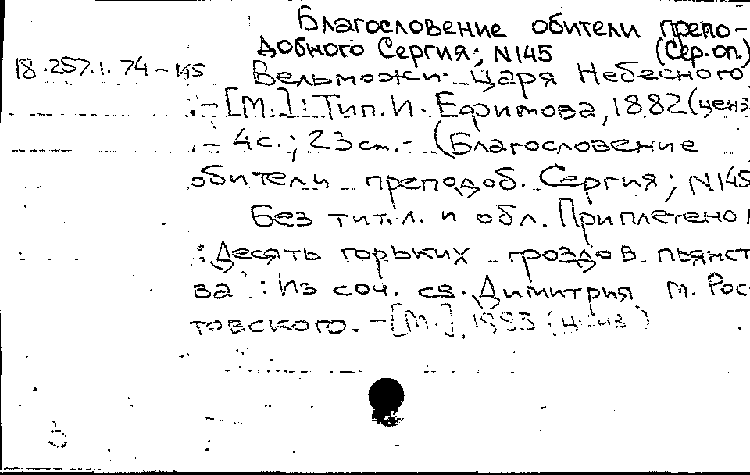 Благословение обители препо-
добного Сергия; N145 (Сер.оп.)
18.257.1.74-145 Вельможи Царя Небесного
.- [М.]: Тип. И. Ефимова, 1882 (ценз
.- 4 с.; 23 см.- (Благословение
обители преподоб. Сергия; N145
Без тит.л. и обл. Приплетено к
: Десять горьких гроздов пьянст
ва : Из соч. св. Димитрия м. Рос-
товского. -[М.], 1883 (ценз)